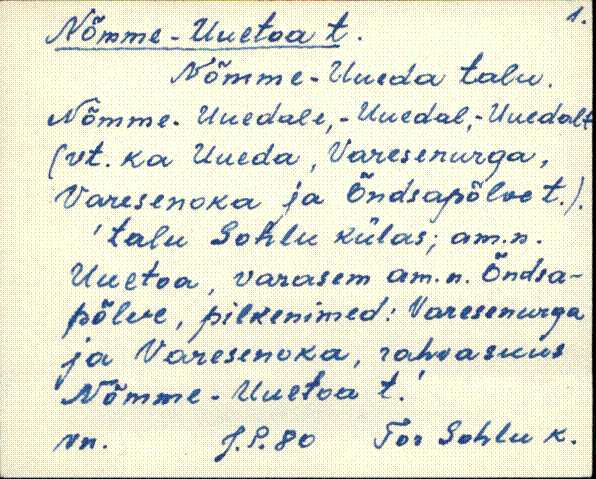 1.
Nõmme-Uuetoa t.
Nõmme-Uueda talu.
Nõmme-Uuedale,-Uuedal,-Uuedalt
(vt. ka Uueda, Varesenurga,
Varesenoka ja Õndsapõlve t.).
'talu Sohlu külas; am.n.
Uuetoa, varasem am.n. Õndsa-
põlve, pilkenimed: Varesenurga
ja Varesenoka, rahvasuus
Nõmme-Uuetoa t.'
vn. J.P.80 Tor Sohlu k.